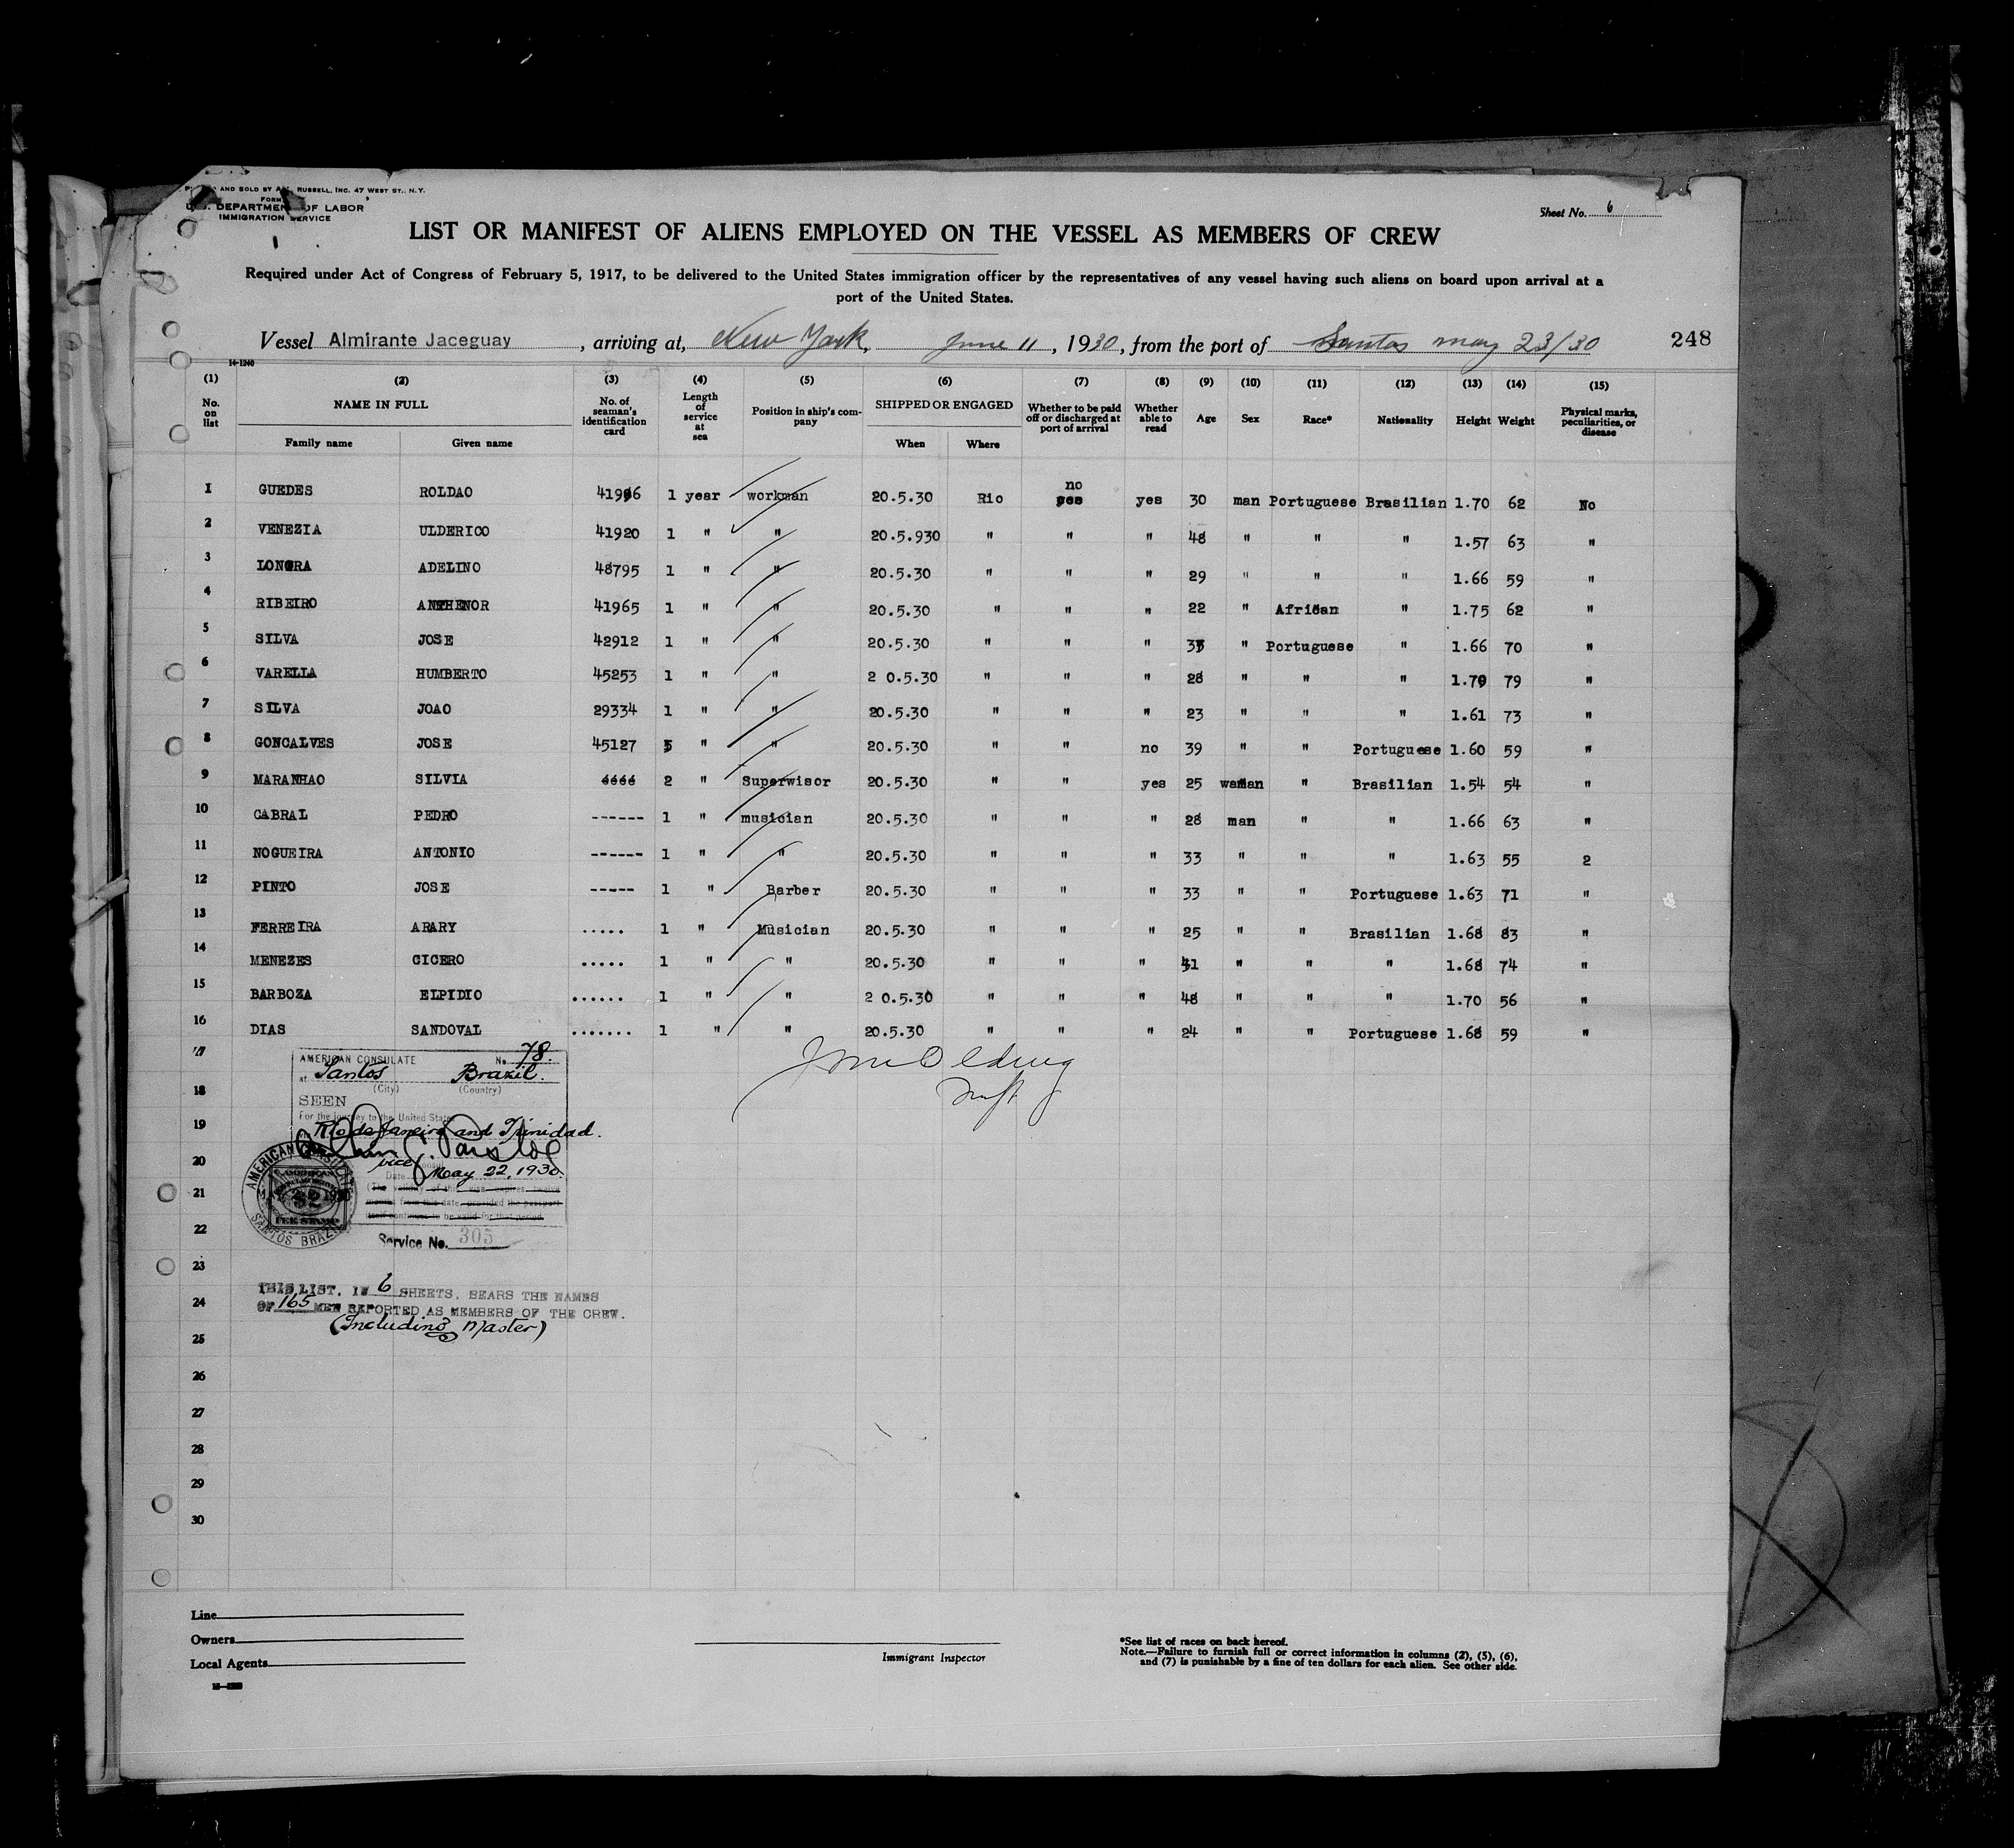 AND SOLD BY RUSSELL, INC. 47 WEST ST., N.Y.
FORM
U.S. DEPARTMENT OF LABOR
IMMIGRATION SERVICE
Sheet No. 6
LIST OR MANIFEST OF ALIENS EMPLOYED ON THE VESSEL AS MEMBERS OF CREW
Required under Act of Congress of February 5, 1917, to be delivered to the United States immigration officer by the representatives of any vessel having such aliens on board upon arrival at a
port of the United States.
Vessel Almirante Jaceguay, arriving at, New York, June 11, 1930, from the port of Santos may 23/30 248
14-1240
(1) (2) (3) (4) (5) (6) (7) (8) (9) (10) (11) (12) (13) (14) (15)
No. on list NAME IN FULL Family name Given name No. of seaman's identification card Length of service at sea Position in ship's company SHIPPED OR ENGAGED When Where Whether to be paid off or discharged at port of arrival Whether able to read Age Sex Race* Nationality Height Weight Physical marks, peculiarities, or disease
no
1 GUEDES ROLDAO 41996 1 year workman 20.5.30 Rio yes yes 30 man Portuguese Brasilian 1.70 62 No
2 VENEZIA ULDERICO 41920 1 " " 20.5.930 " " " 48 " " " 1.57 63 "
3 LONGRA ADELINO 48795 1 " " 20.5.30 " " " 29 " " " 1.66 59 "
4 RIBEIRO ANTHENOR 41965 1 " " 20.5.30 " " " 22 " African " 1.75 62 "
5 SILVA JOSE 42912 1 " " 20.5.30 " " " " Portuguese " 1.66 70 "
6 VARELLA HUMBERTO 45253 1 " " 2 0.5.30 " " " 28 " " " 1.70 79 "
7 SILVA JOAO 29334 1 " " 20.5.30 " " " 23 " " " 1.61 73 "
8 GONCALVES JOSE 45127 5 " " 20.5.30 " " no 39 " " Portuguese 1.60 59 "
9 MARANHAO SILVIA 2 " Superwisor 20.5.30 " " yes 25 waman " Brasilian 1.54 54 "
10 CABRAL PEDRO ------ 1 " musician 20.5.30 " " " 28 man " " 1.66 63 "
11 NOGUEIRA ANTONIO ------ 1 " " 20.5.30 " " " 33 " " " 1.63 55 2
12 PINTO JOSE ----- 1 " Barber 20.5.30 " " " 33 " " Portuguese 1.63 71 "
13 FERREIRA ARARY ..... 1 " Musician 20.5.30 " " " 25 " " Brasilian 1.68 83 "
14 MENEZES CICERO ..... 1 " " 20.5.30 " " " 41 " " " 1.68 74 "
15 BARBOZA ELPIDIO ...... 1 " " 2 0.5.30 " " " 48 " " " 1.70 56 "
16 DIAS SANDOVAL ....... 1 " " 20.5.30 " " " 24 " " Portuguese 1.68 59 "
17
18
19
20
21
22
23
24
25
26
27
28
29
30
AMERICAN CONSULATE No. 78.
at Santos Brazil.
(City) (Country)
SEEN
For the journey to the United States
Rio de Janeiro and Trinidad.
vice
Date May 22, 1930.
AMERICAN CONSULATE
SANTOS BRAZIL
$2
FEE STAMP
Service No. 305
THIS LIST, IN 6 SHEETS, BEARS THE NAMES
OF 165 MEN REPORTED AS MEMBERS OF THE CREW.
(Including Master)
Line
Owners
Local Agents
Immigrant Inspector
*See list of races on back hereof.
Note.—Failure to furnish full or correct information in columns (2), (5), (6),
and (7) is punishable by a fine of ten dollars for each alien. See other side.